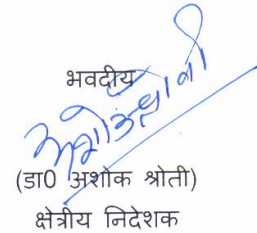 भवदीय
(डा0 अशोक श्रोती)
क्षेत्रीय निदेशक